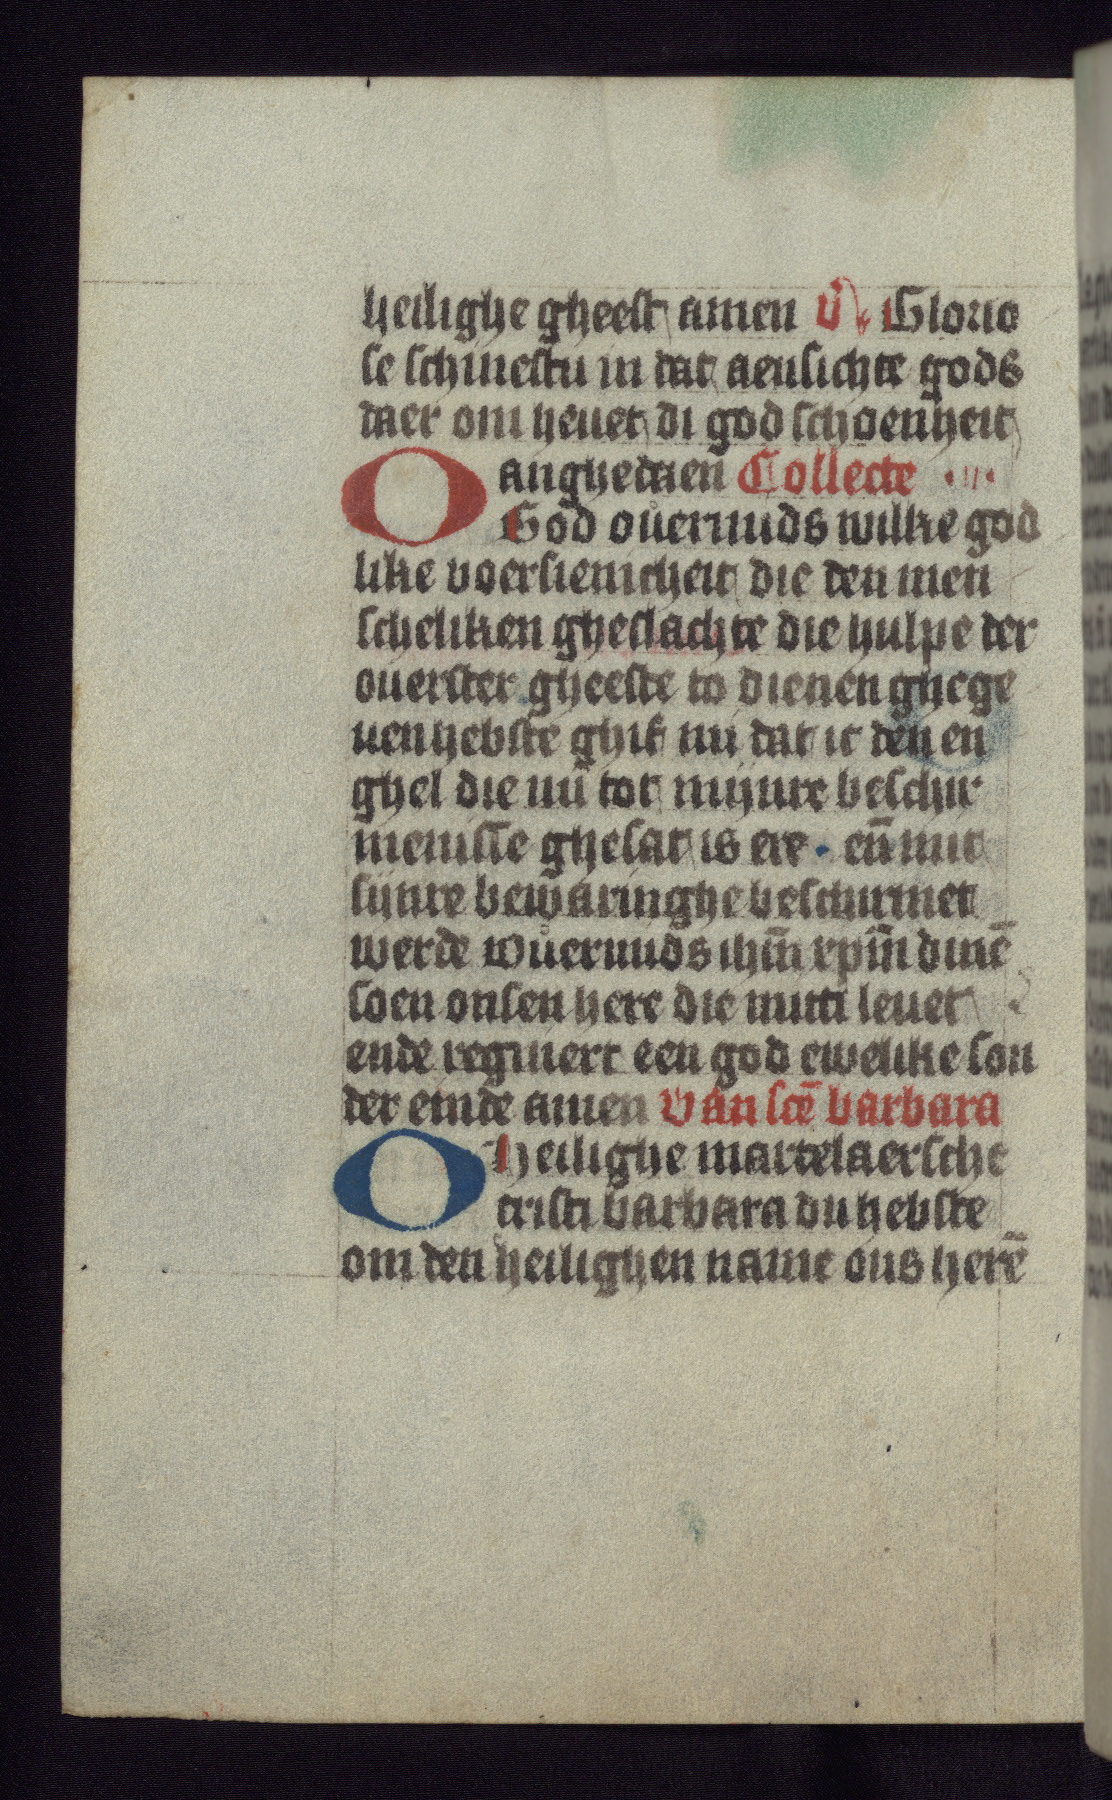 heilighe gheest amen V Glorio
se schinestu in dat aensichte gods
daer om heuet di god schoenheit
anghedaen Collecte
O God ouermids wilke god
like voersienicheit die den men
scheliken gheslachte die hulpe der
ouerster gheeste to dienen ghege
uen hebste ghif mi dat ic den en
ghel die nu tot mijnre beschir
menisse ghesat is ere · eñ mit
sijnre bewaringhe beschirmet
werde ouermids ihm̄ xpm̄ dinē
soen onsen here die mitti leuet
ende regniert een god ewelike son
der einde amen Van scē barbara
O heilighe martelaersche
cristi barbara du hebste
om den heilighen name ons herē